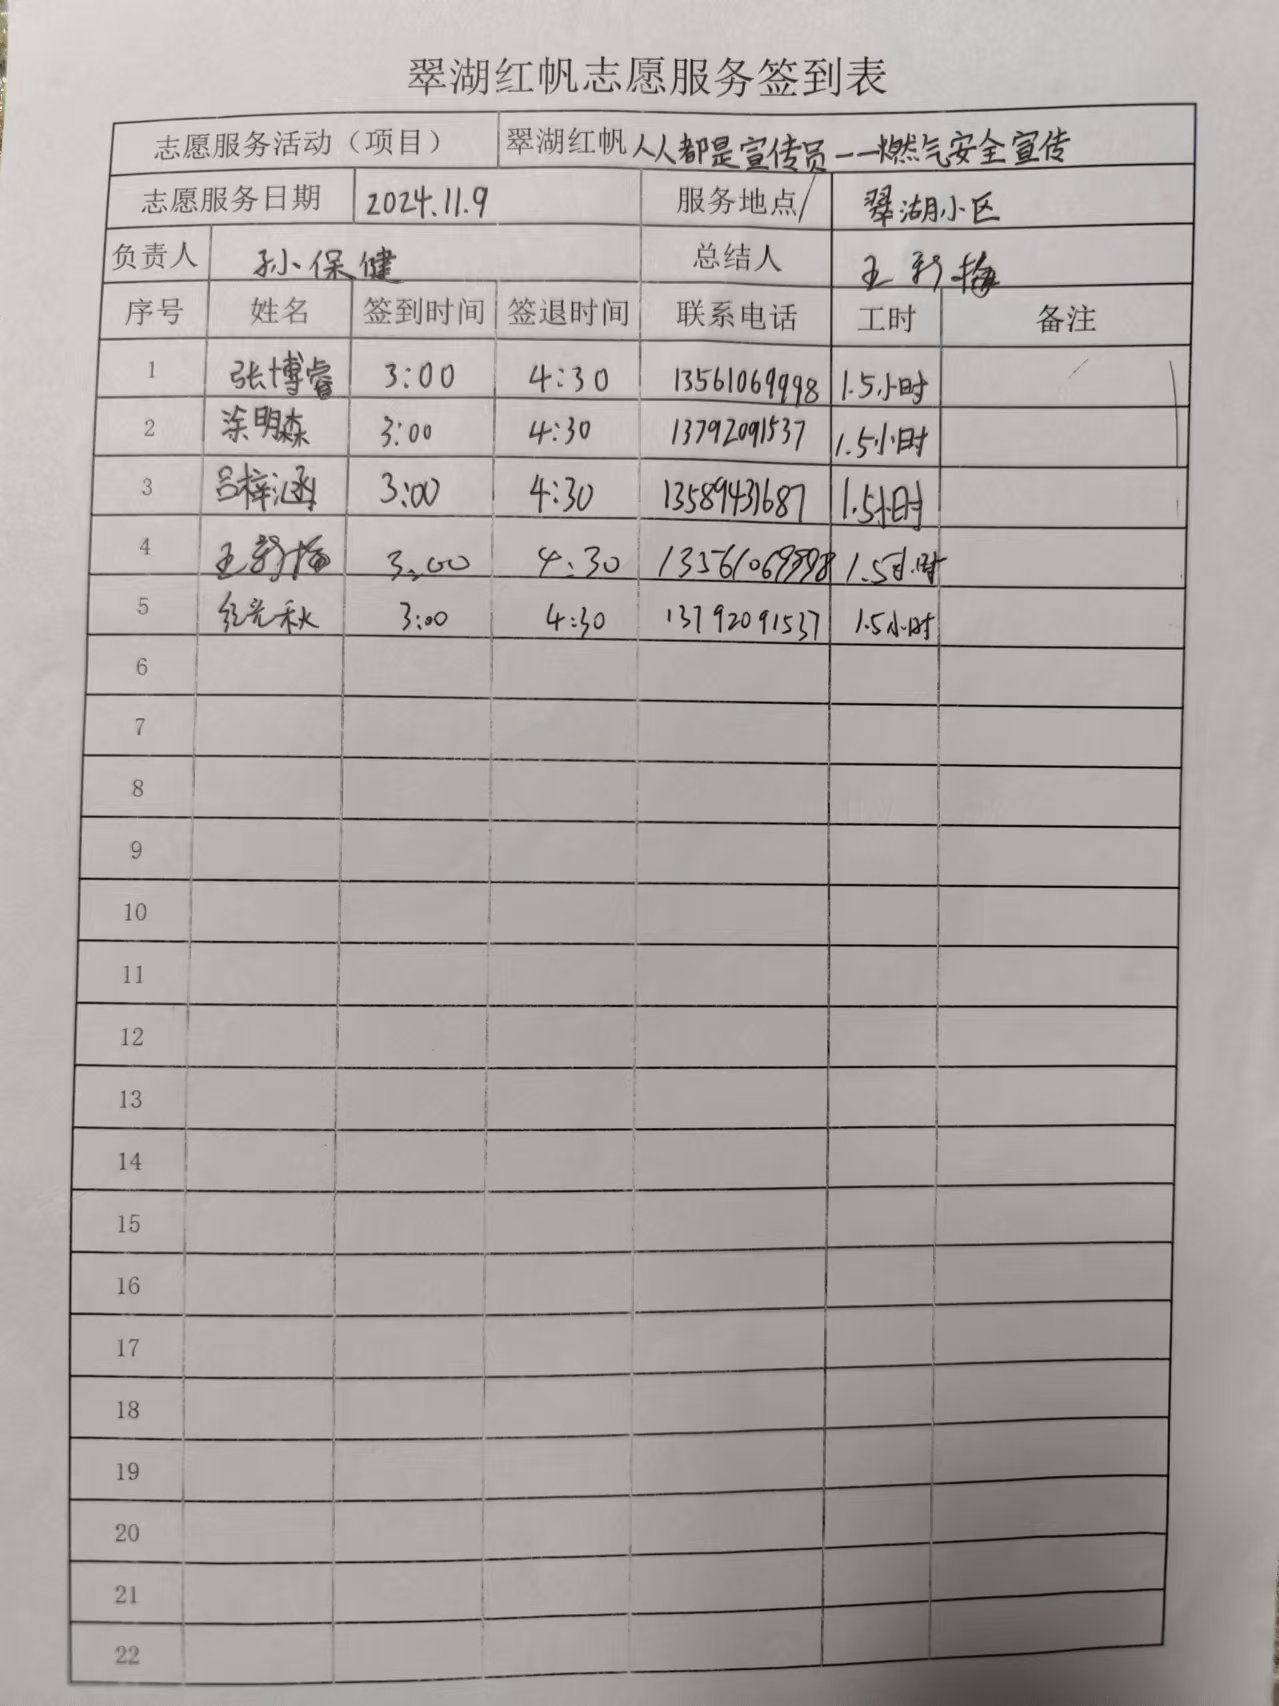 翠湖红帆志愿服务签到表
志愿服务活动（项目） 翠湖红帆人人都是宣传员——燃气安全宣传
志愿服务日期 2024.11.9 服务地点/ 翠湖小区
负责人 孙保健 总结人 王新梅
序号 姓名 签到时间 签退时间 联系电话 工时 备注
1 张博睿 3:00 4:30 13561069998 1.5小时
2 涂明森 3:00 4:30 13792091537 1.5小时
3 吕梓涵 3:00 4:30 13589431687 1.5小时
4 王新梅 3:00 4:30 13561069998 1.5小时
5 3:00 4:30 13792091537 1.5小时
6
7
8
9
10
11
12
13
14
15
16
17
18
19
20
21
22